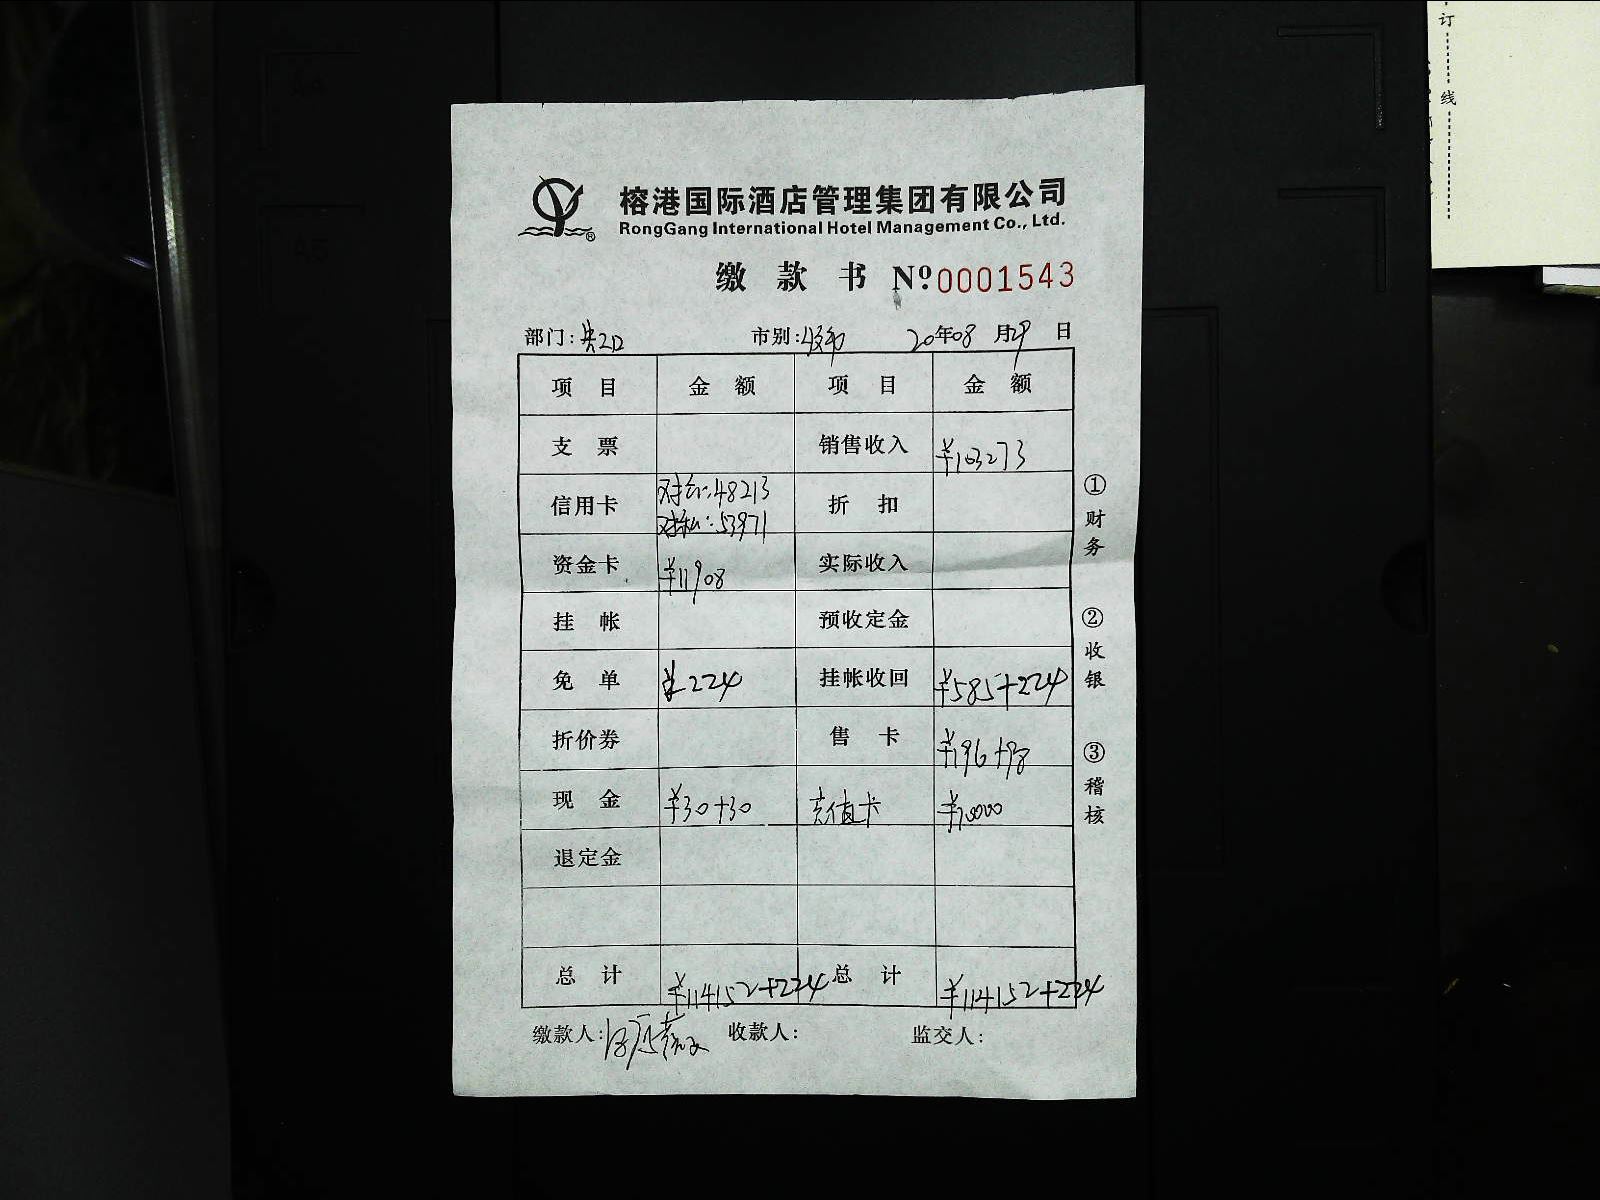 订
线
榕港国际酒店管理集团有限公司
RongGang International Hotel Management Co., Ltd.
缴 款 书 Nº:0001543
部门: 市别: 20年08月29日
项 目 金 额 项 目 金 额
支 票 销售收入 ¥103273
信用卡 对公:48213 折 扣
对私:53971
资金卡 ¥11908 实际收入
挂 帐 预收定金
免 单 ¥224 挂帐收回 ¥585+224
折价券 售 卡 ¥196+98
现 金 ¥30+30 充值卡 ¥10000
退定金
总 计 ¥114152+224 总 计 ¥114152+224
缴款人: 收款人: 监交人:
①财务
②收银
③稽核